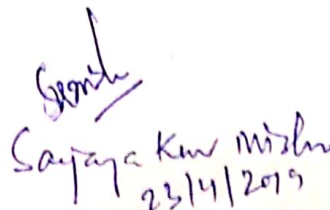 Sanjaya Kur Mishra
23/4/2019